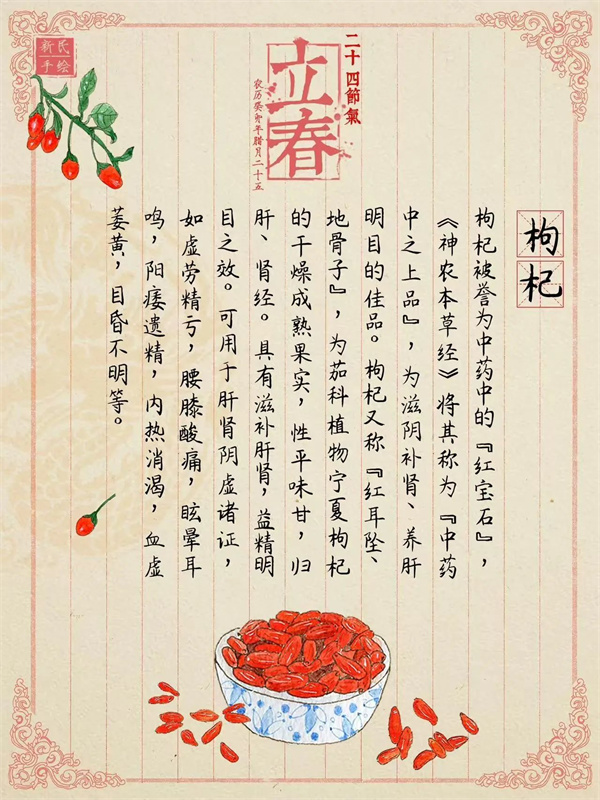 新民
手绘
二十四節氣
立春
农历癸卯年腊月二十五
枸杞
枸杞被誉为中药中的『红宝石』，
《神农本草经》将其称为『中药
中之上品』，为滋阴补肾、养肝
明目的佳品。枸杞又称『红耳坠、
地骨子』，为茄科植物宁夏枸杞
的干燥成熟果实，性平味甘，归
肝、肾经。具有滋补肝肾，益精明
目之效。可用于肝肾阴虚诸证，
如虚劳精亏，腰膝酸痛，眩晕耳
鸣，阳痿遗精，内热消渴，血虚
萎黄，目昏不明等。